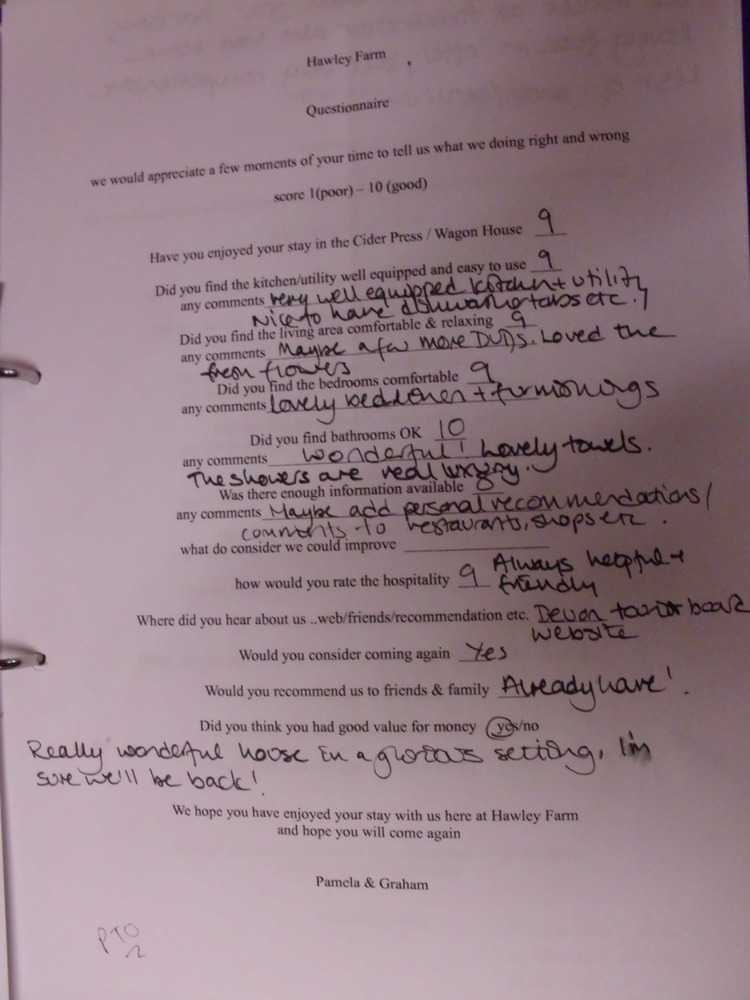 Hawley Farm
Questionnaire
we would appreciate a few moments of your time to tell us what we doing right and wrong
score 1(poor) – 10 (good)
Have you enjoyed your stay in the Cider Press / Wagon House 9
Did you find the kitchen/utility well equipped and easy to use 9
any comments very well equipped kitchen + utility
Nice to have dishwasher tabs etc.
Did you find the living area comfortable & relaxing 9
any comments Maybe a few more DVDs. Loved the
fresh flowers
Did you find the bedrooms comfortable 9
any comments Lovely bedlinen + furnishings
Did you find bathrooms OK 10
any comments Wonderful! Lovely towels.
The showers are real luxury.
Was there enough information available 8
any comments Maybe add personal recommendations/
comments to restaurants, shops etc.
what do consider we could improve
how would you rate the hospitality 9 Always helpful +
friendly
Where did you hear about us ..web/friends/recommendation etc. Devon tourist board
website
Would you consider coming again Yes
Would you recommend us to friends & family Already have!.
Did you think you had good value for money yes/no
Really wonderful house in a glorious setting, I'm
sure we'll be back!
We hope you have enjoyed your stay with us here at Hawley Farm
and hope you will come again
Pamela & Graham
PTO